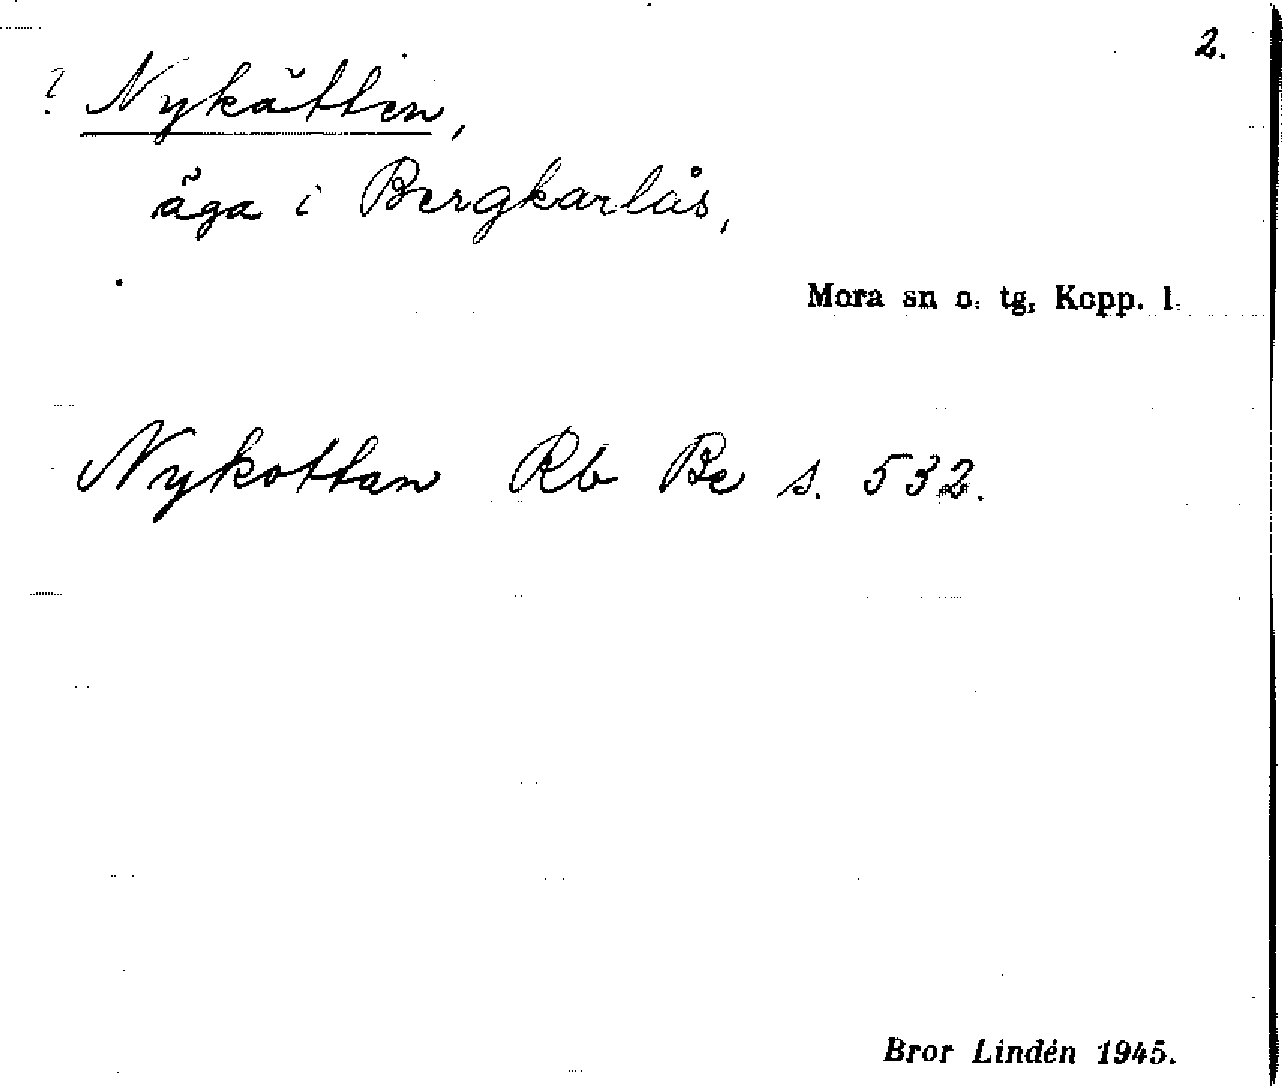 2.
? Nykättin,
äga i Bergkarlås,
Mora sn o. tg, Kopp. l.
Nykottan Rb Be s. 532.
Bror Lindén 1945.